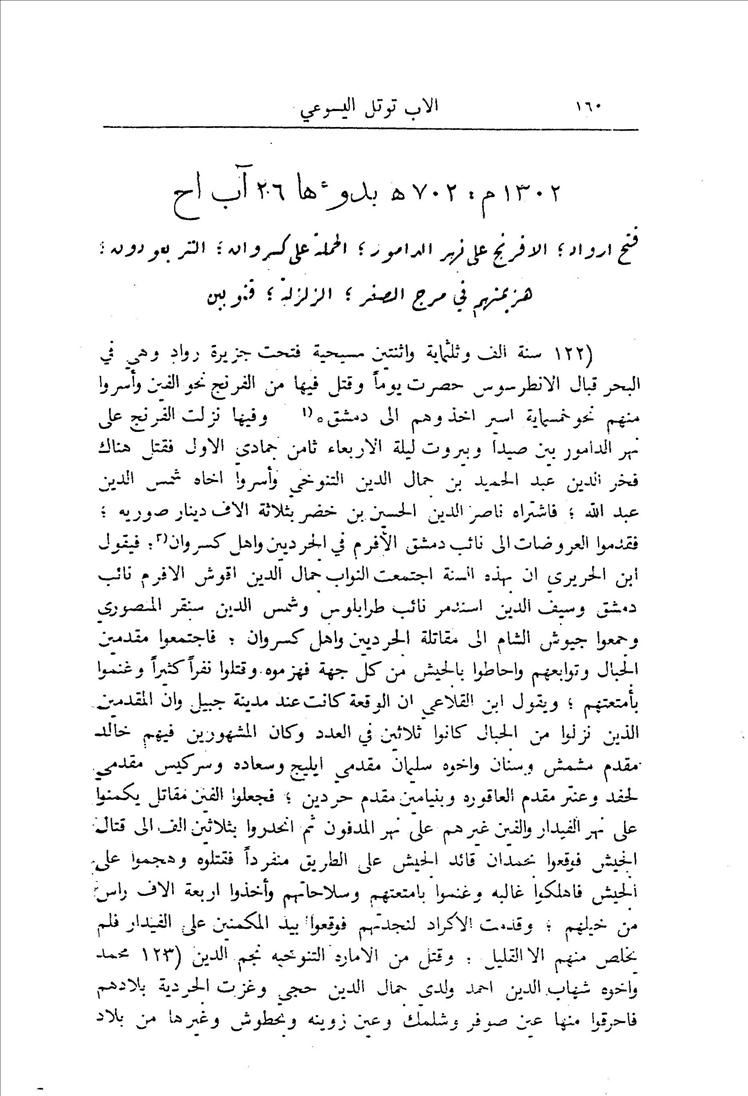 ١٦٠ الاب توتل اليسوعي
١٣٠٢ م : ٧٠٢ هـ بدوءها ٢٠٦ آب اح
فتح ارواد ؛ الافرنج على نهر الدامور ؛ الحملة على كسروان ؛ التتر يعودون ؛
هزيمتهم في مرج الصفر ؛ الزلزلة ؛ قنوبين
١٢٢) سنة الف وثلثماية واثنتين مسيحية فتحت جزيرة رواد وهي في
البحر قبال الانطرسوس حصرت يوماً وقتل فيها من الفرنج نحو الفين وأسروا
منهم نحو خمسماية اسير اخذوهم الى دمشق ٥ (١ وفيها نزلت الفرنج على
نهر الدامور بين صيدا وبيروت ليلة الاربعاء ثامن جمادي الاول فقتل هناك
فخر الدين عبد الحميد بن جمال الدين التنوخي وأسروا اخاه شمس الدين
عبد الله ؛ فاشتراه ناصر الدين الحسين بن خضر بثلاثة الاف دينار صوريه ؛
فقدموا العروضات الى نائب دمشق الأفرم في الجرديين واهل كسروان (٢؛ فيقول
ابن الحريري ان بهذه السنة اجتمعت النواب جمال الدين اقوش الافرم نائب
دمشق وسيف الدين اسندمر نائب طرابلوس وشمس الدين سنقر المنصوري
وجمعوا جيوش الشام الى مقاتلة الجرديين واهل كسروان ؛ فاجتمعوا مقدمين
الجبال وتوابعهم واحاطوا بالجيش من كل جهة فهزموه وقتلوا نفراً كثيراً وغنموا
بأمتعتهم ؛ ويقول ابن القلاعي ان الوقعة كانت عند مدينة جبيل وان المقدمين
الذين نزلوا من الجبال كانوا ثلاثين في العدد وكان المشهورين فيهم خالد
مقدم مشمش وسنان واخوه سليمان مقدمي ايليج وسعاده وسركيس مقدمي
لحفد وعنتر مقدم العاقوره وبنيامين مقدم حردين ؛ فجعلوا الفين مقاتل يكمنوا
على نهر الفيدار والفين غيرهم على نهر المدفون ثم انحدروا بثلاثين الف الى قتال
الجيش فوقعوا بحمدان قائد الجيش على الطريق منفرداً فقتلوه وهجموا على
الجيش فاهلكوا غالبه وغنموا بامتعتهم وسلاحاتهم وأخذوا اربعة الاف راس
من خيلهم ؛ وقدمت الاكراد لنجدتهم فوقعوا بيد المكمنين على الفيدار فلم
يخلص منهم الا القليل ؛ وقتل من الاماره التنوخيه نجم الدين (١٢٣ محمد
واخوه شهاب الدين احمد ولدي جمال الدين حجي وغزت الجردية بلادهم
فاحرقوا منها عين صوفر وشلمك وعين زوينه وبحطوش وغيرها من بلاد